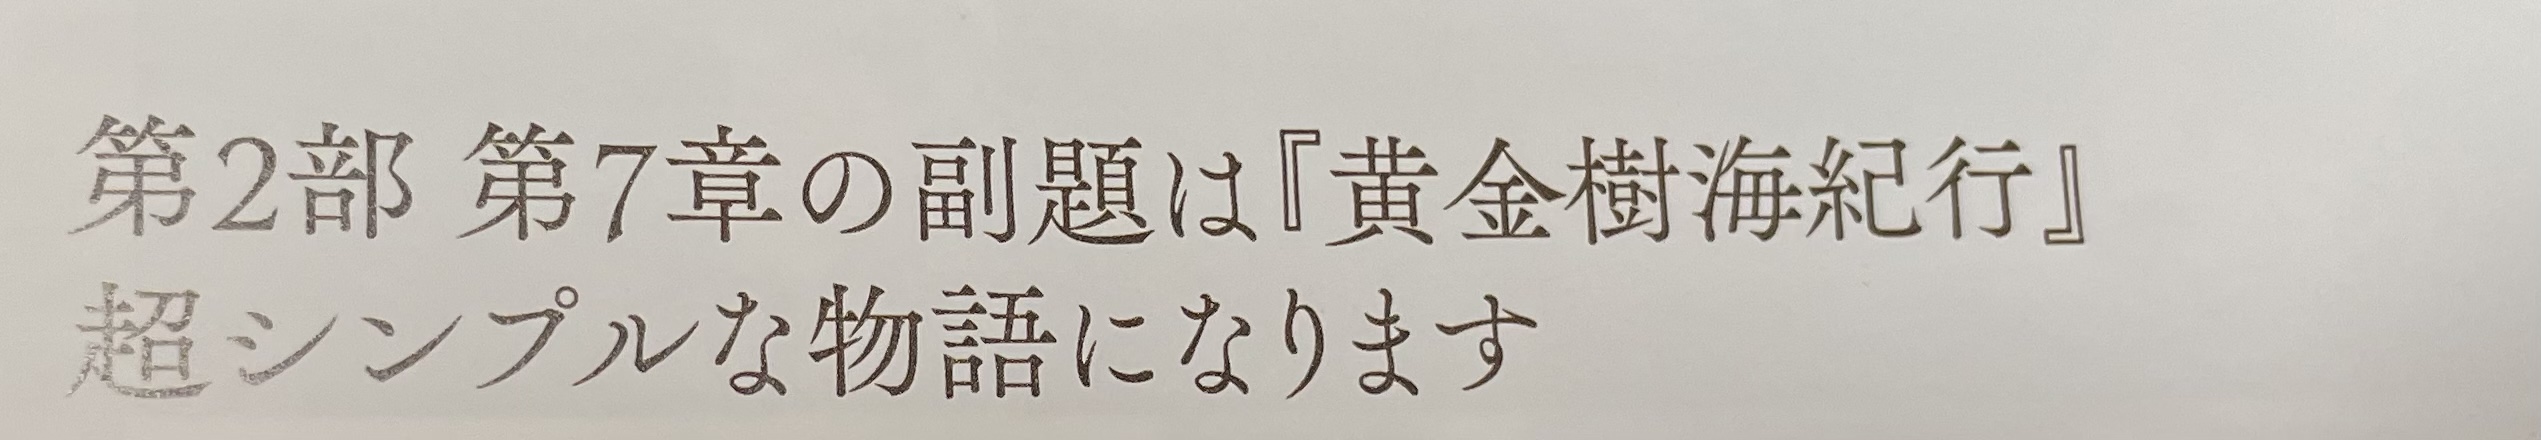 第2部 第7章の副題は『黄金樹海紀行』
超シンプルな物語になります